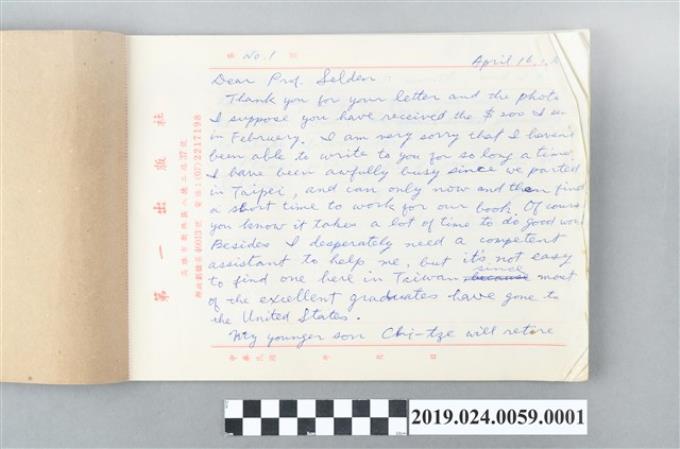 第 No. 1 頁
April 16,
Dear Prof. Selden:
Thank you for your letter and the photo
I suppose you have received the $200 I
in February. I am very sorry that I haven't
been able to write to you for so long a time.
I have been awfully busy since we parted
in Taipei, and can only now and then find
a short time to work for our book. Of course
you know it takes a lot of time to do good
Besides I desperately need a competent
assistant to help me, but it's not easy
to find one here in Taiwan because since most
of the excellent graduates have gone to
the United States.
My younger son Chi-tze will
中華民國 年 月 日
第一出版社
電話:(07)2217198
2019.024.0059.0001